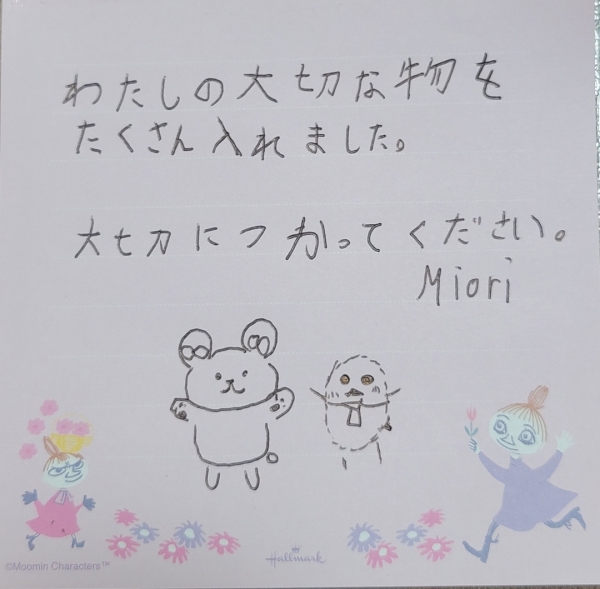 わたしの大切な物を
たくさん入れました。
大切につかってください。
Miori
©Moomin Characters™
Hallmark